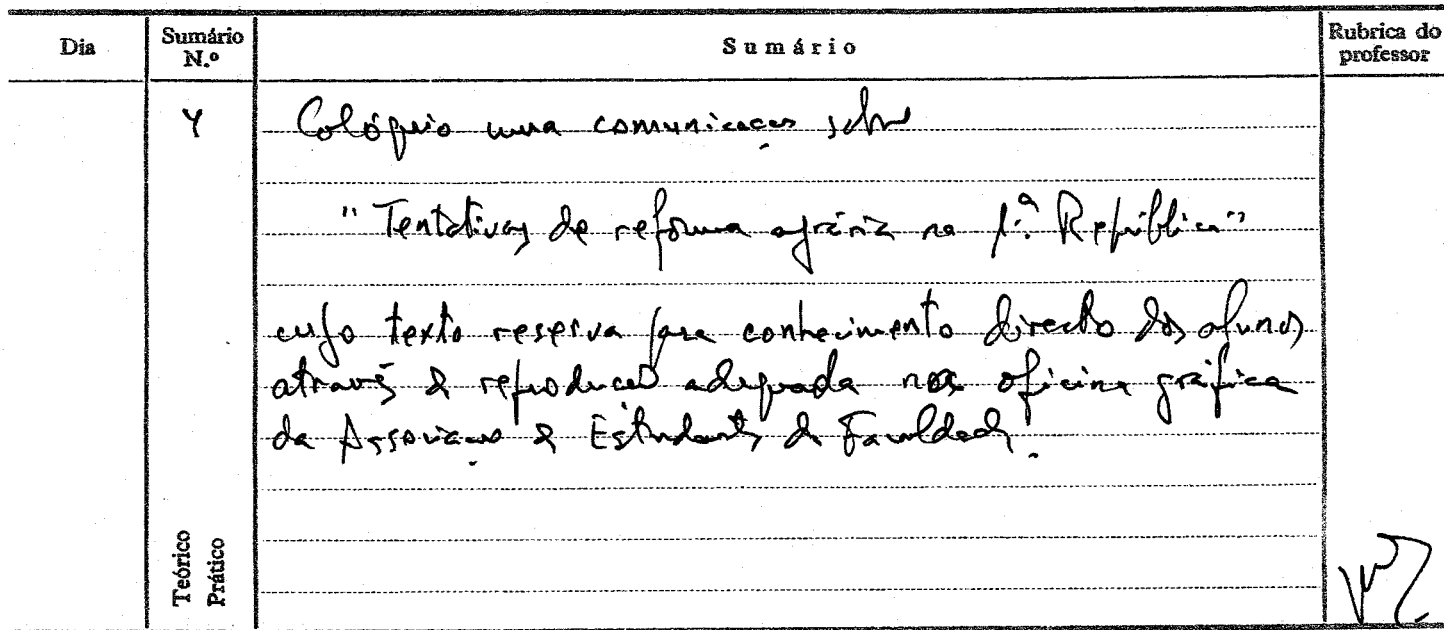 Dia
Sumário N.º
Sumário
Rubrica do professor
Y
Colóquio uma comunicação sobre
"Tentativas de reforma agrária na 1.ª República"
cujo texto reserva para conhecimento directo dos alunos
através de reprodução adequada na oficina gráfica
da Associação de Estudantes da Faculdade.
Teórico
Prático